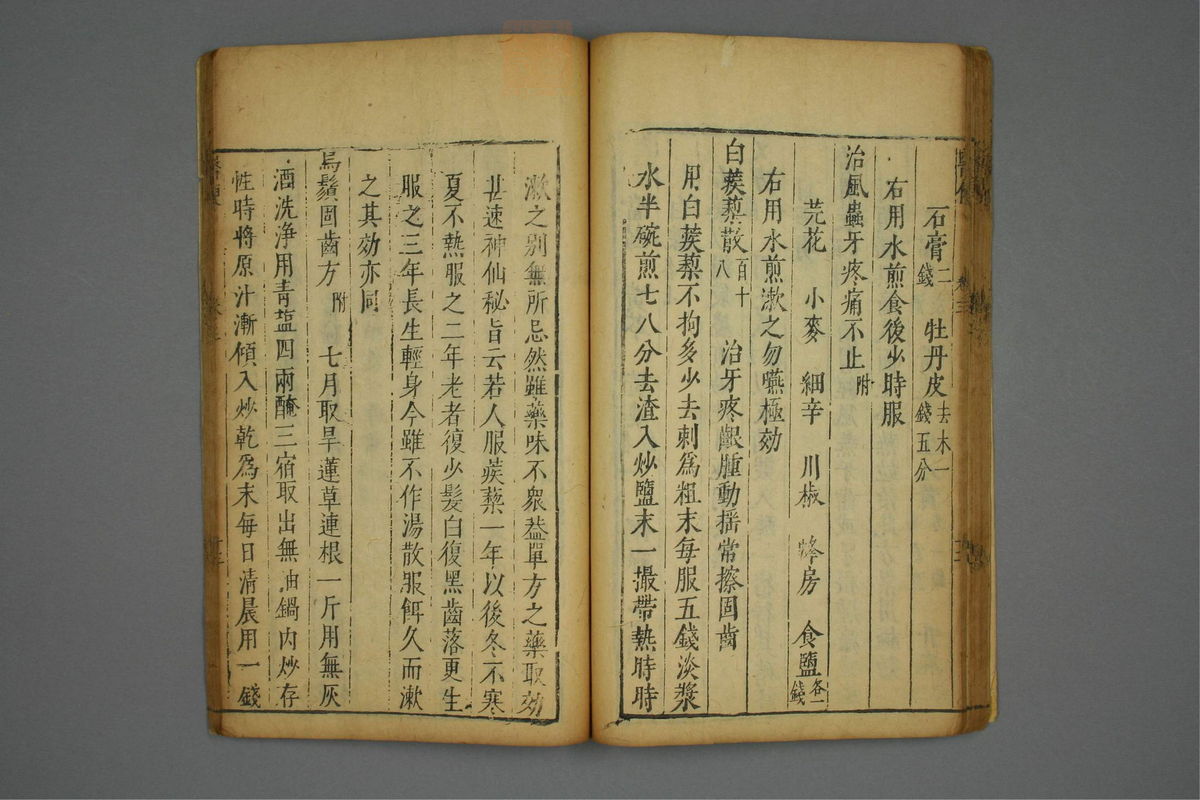 石膏二錢 牡丹皮去木一錢五分
右用水煎食後少時服
治風蟲牙疼痛不止附
芫花 小麥 細辛 川椒 蜂房 食鹽各一錢
右用水煎漱之勿嚥極効
白蒺藜散百十八 治牙疼齦腫動搖常擦固齒
用白蒺藜不拘多少去刺爲粗末每服五錢淡漿
水半碗煎七八分去渣入炒鹽末一撮帶熱時時
漱之别無所忌然雖藥味不衆葢單方之藥取効
甚速神仙秘旨云若人服蒺藜一年以後冬不寒
夏不熱服之二年老者復少髮白復黑齒落更生
服之三年長生輕身今雖不作湯散服餌久而漱
之其効亦同
烏鬚固齒方附 七月取旱蓮草連根一斤用無灰
酒洗浄用青塩四兩醃三宿取出無油鍋内炒存
性時將原汁漸傾入炒乾爲末每日清晨用一錢